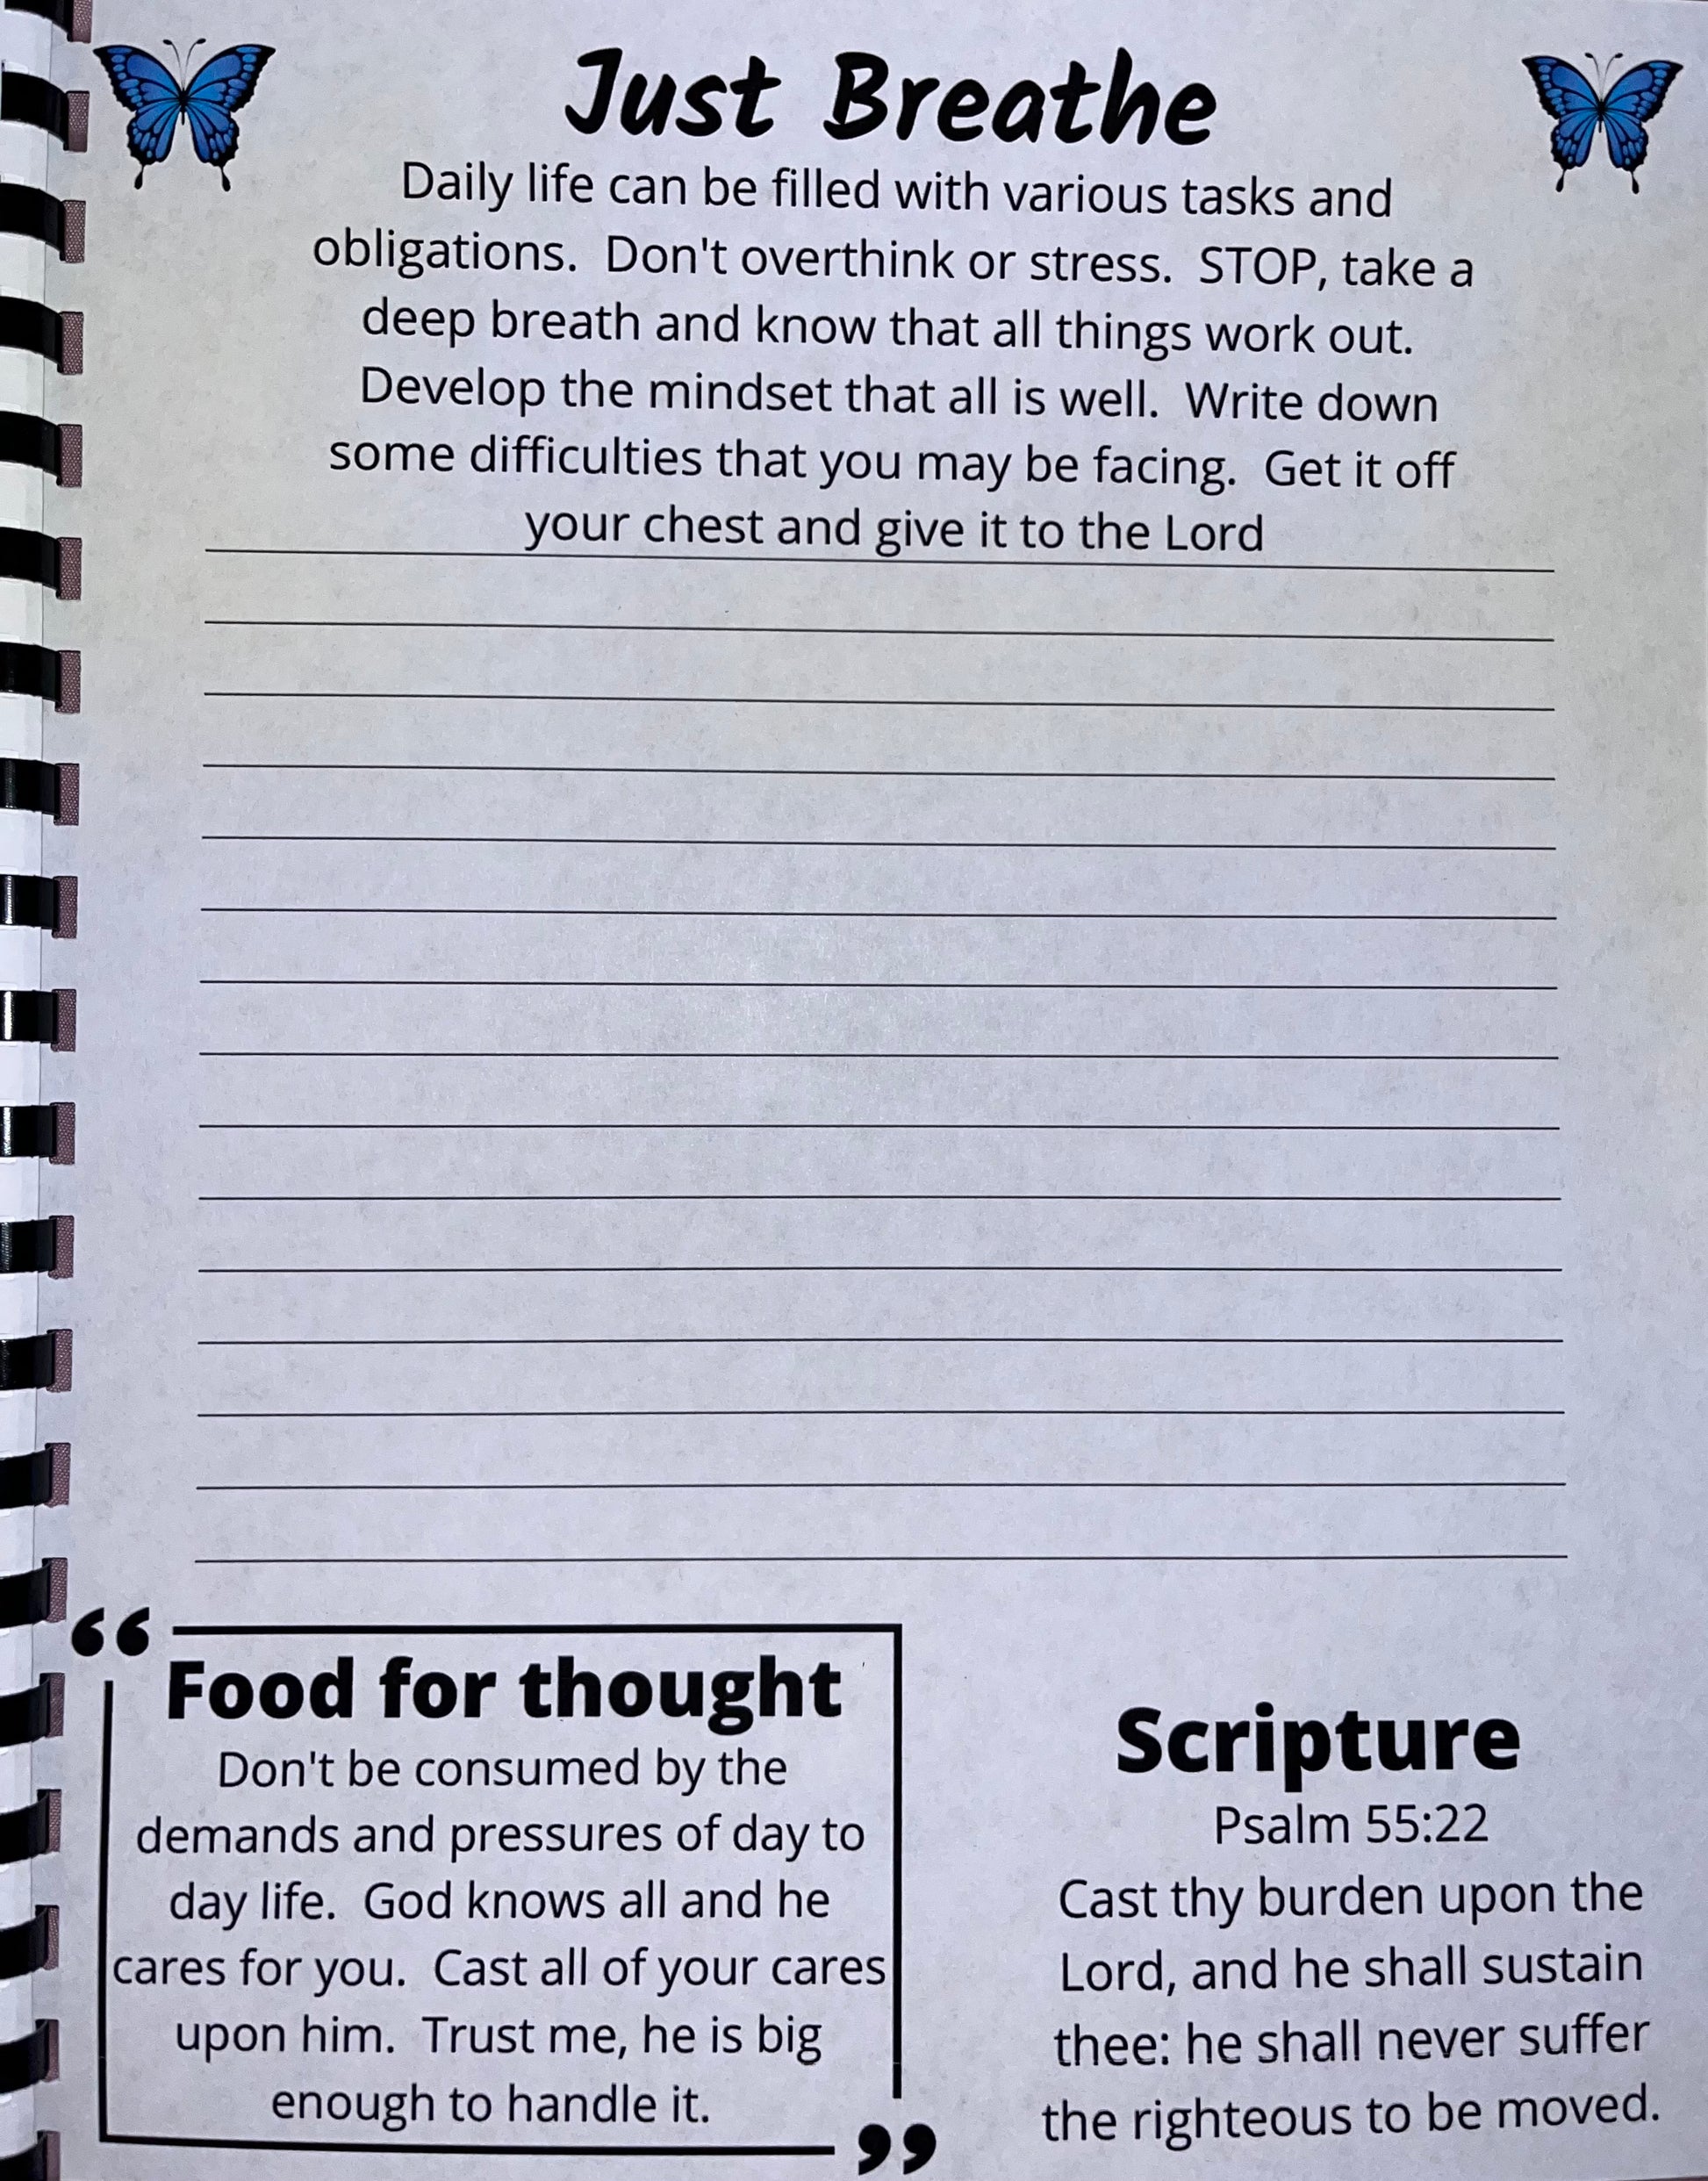 Just Breathe
Daily life can be filled with various tasks and
obligations.  Don't overthink or stress.  STOP, take a
deep breath and know that all things work out.
Develop the mindset that all is well.  Write down
some difficulties that you may be facing.  Get it off
your chest and give it to the Lord
“
Food for thought
Don't be consumed by the
demands and pressures of day to
day life.  God knows all and he
cares for you.  Cast all of your cares
upon him.  Trust me, he is big
enough to handle it.
”
Scripture
Psalm 55:22
Cast thy burden upon the
Lord, and he shall sustain
thee: he shall never suffer
the righteous to be moved.